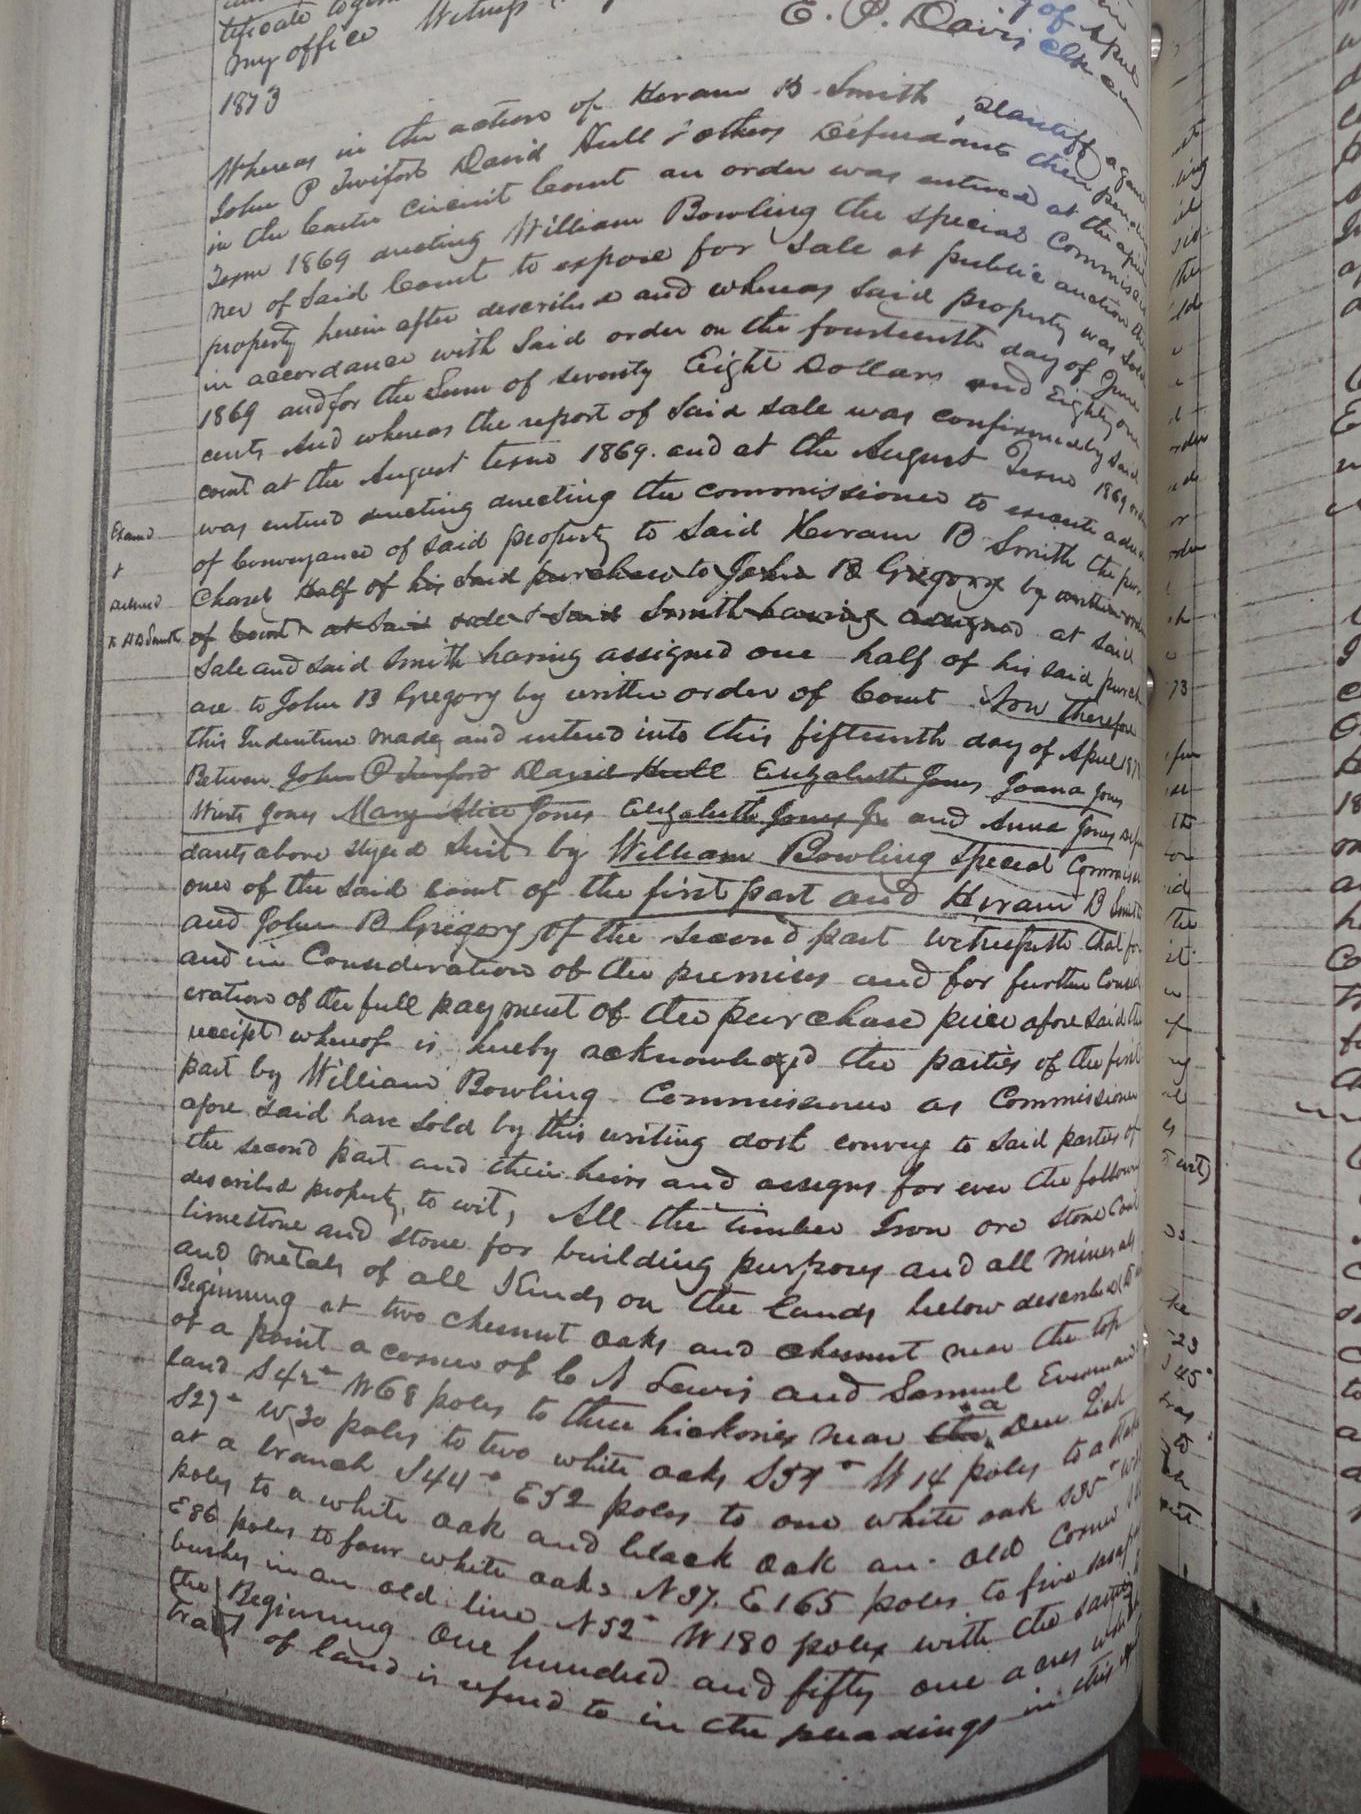 tificate
my office Witness
of April
E. P. Davis Clk
1873
Whereas in the action of Hiram B Smith Plaintiff again
John P Twiford David Hull & others Defendants then pendi
in the Carter Circuit Court an order was entered at the april
Term 1869 directing William Bowling the special Commissio
ner of said Court to expose for sale at public auction the
property herein after described and whereas said property was sold
in accordance with said order on the fourteenth day of June
1869 and for the Sum of seventy Eight Dollars and Eighty one
cents And whereas the report of said sale was confirmed by said
court at the August term 1869. and at the August Term 1869 order
was entered directing directing the commissioner to execute a deed
of Conveyance of said property to said Hiram B Smith the pur
Chaser Half of his said purchase to John B Gregory by written order
of Court at said order & said Smith having assigned at said
Sale and said Smith having assigned one half of his said purch
ase to John B Gregory by written order of Court Now therefore
this Indenture made and entered into this fifteenth day of April 187
Between John P Twiford David Hull Elizabeth Jones Joana Jones
Jones Mary Alice Jones Elizabeth Jones Jr and Anna Jones defen
dants above styled suit by William Bowling Special Commissi
oner of the said court of the first part and Hiram B Smith
and John B Gregory of the second part witnesseth that for
and in Consideration of the premises and for further Consid
eration of the full payment of the purchase price afore said the
receipt whereof is hereby acknowledged the parties of the first
part by William Bowling Commissioner as Commissioner
afore said have sold by this writing doth convey to said parties of
the second part and their heirs and assigns for ever the following
described property, to wit, All the timber Iron ore stone Coal
limestone and stone for building purposes and all minerals
and metals of all Kinds on the lands below described
Beginning at two chesnut oaks and chesnut near the top
of a point a corner of C A Lewis and Samuel Everman
land S42° W68 poles to three hickories near the a Deer Lick
S27° W30 poles to two white oaks S54° W14 poles to a stake
at a branch S44° E52 poles to one white oak S35° W
poles to a white oak and black oak an old corner
E86 poles to four white oaks N37. E165 poles to five sassaf
bushes in an old line N52° W180 poles with the same
the Beginning One hundred and fifty one acres which
tract of land is referred to in the pleadings in this
Examd
&
delivered
to H B Smith